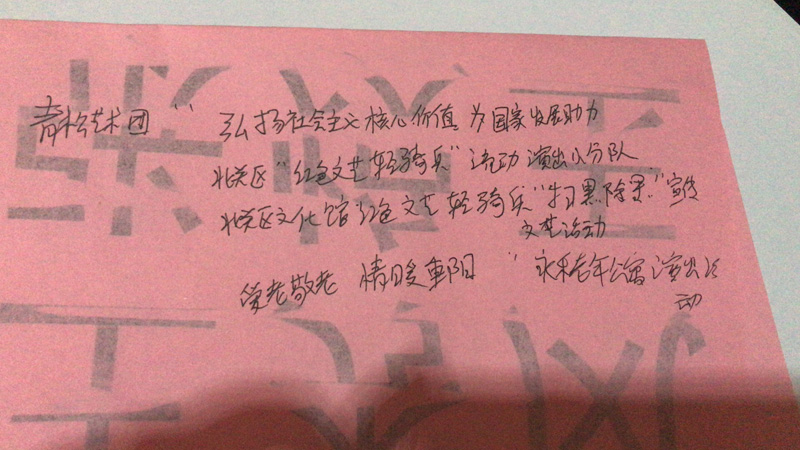 青松艺术团 “ 弘扬社会主义核心价值 为国家发展助力
北关区“红色文艺轻骑兵”流动演出小分队
北关区文化馆红色文艺轻骑兵“扫黑除恶”宣传
文艺活动
爱老敬老 情暖重阳 “永和老年公寓演出活
动